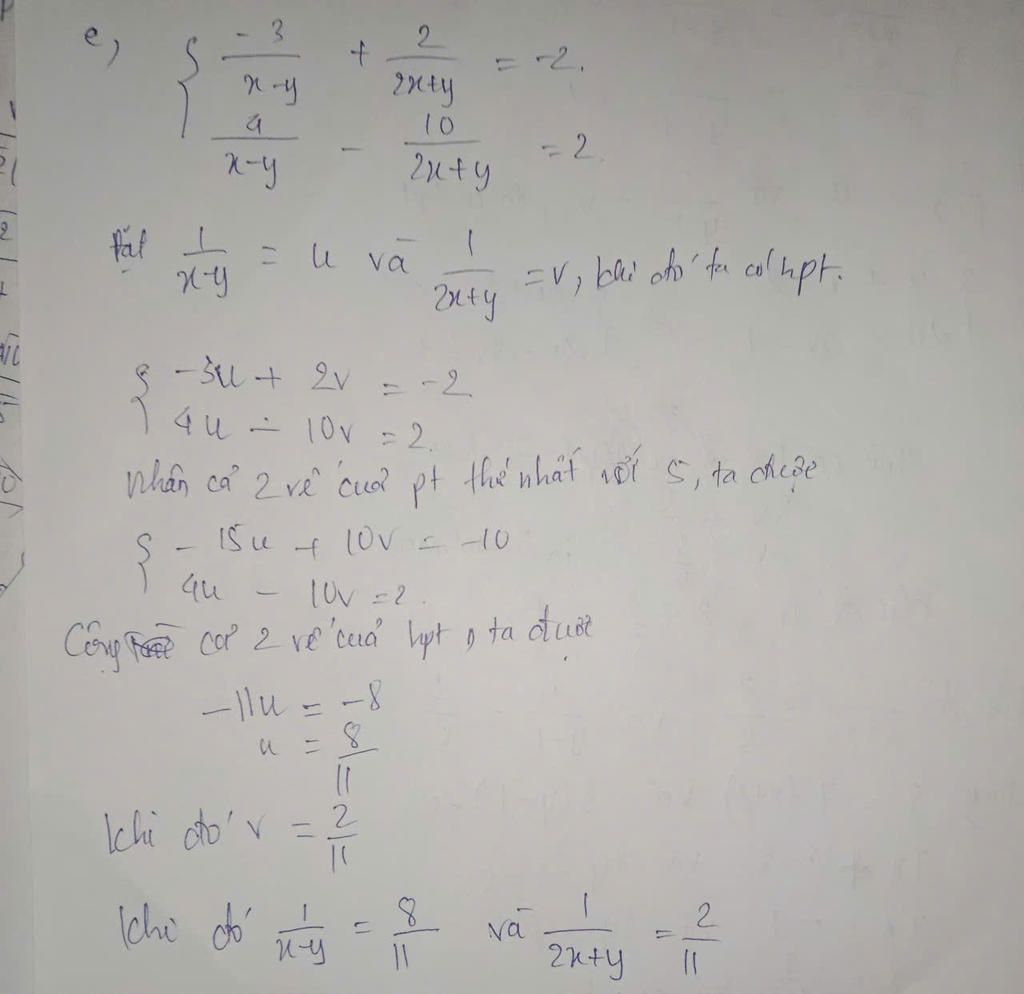 e, { -3/(x-y) + 2/(2x+y) = -2.
4/(x-y) - 10/(2x+y) = 2.
Đặt 1/(x-y) = u và 1/(2x+y) = v, khi đó ta có hpt.
{ -3u + 2v = -2
4u - 10v = 2.
Nhân cả 2 vế của pt thứ nhất với 5, ta được
{ -15u + 10v = -10
4u - 10v = 2.
Cộng cả 2 vế của hpt, ta được
-11u = -8
u = 8/11
Khi đó v = 2/11
Khi đó 1/(x-y) = 8/11 và 1/(2x+y) = 2/11